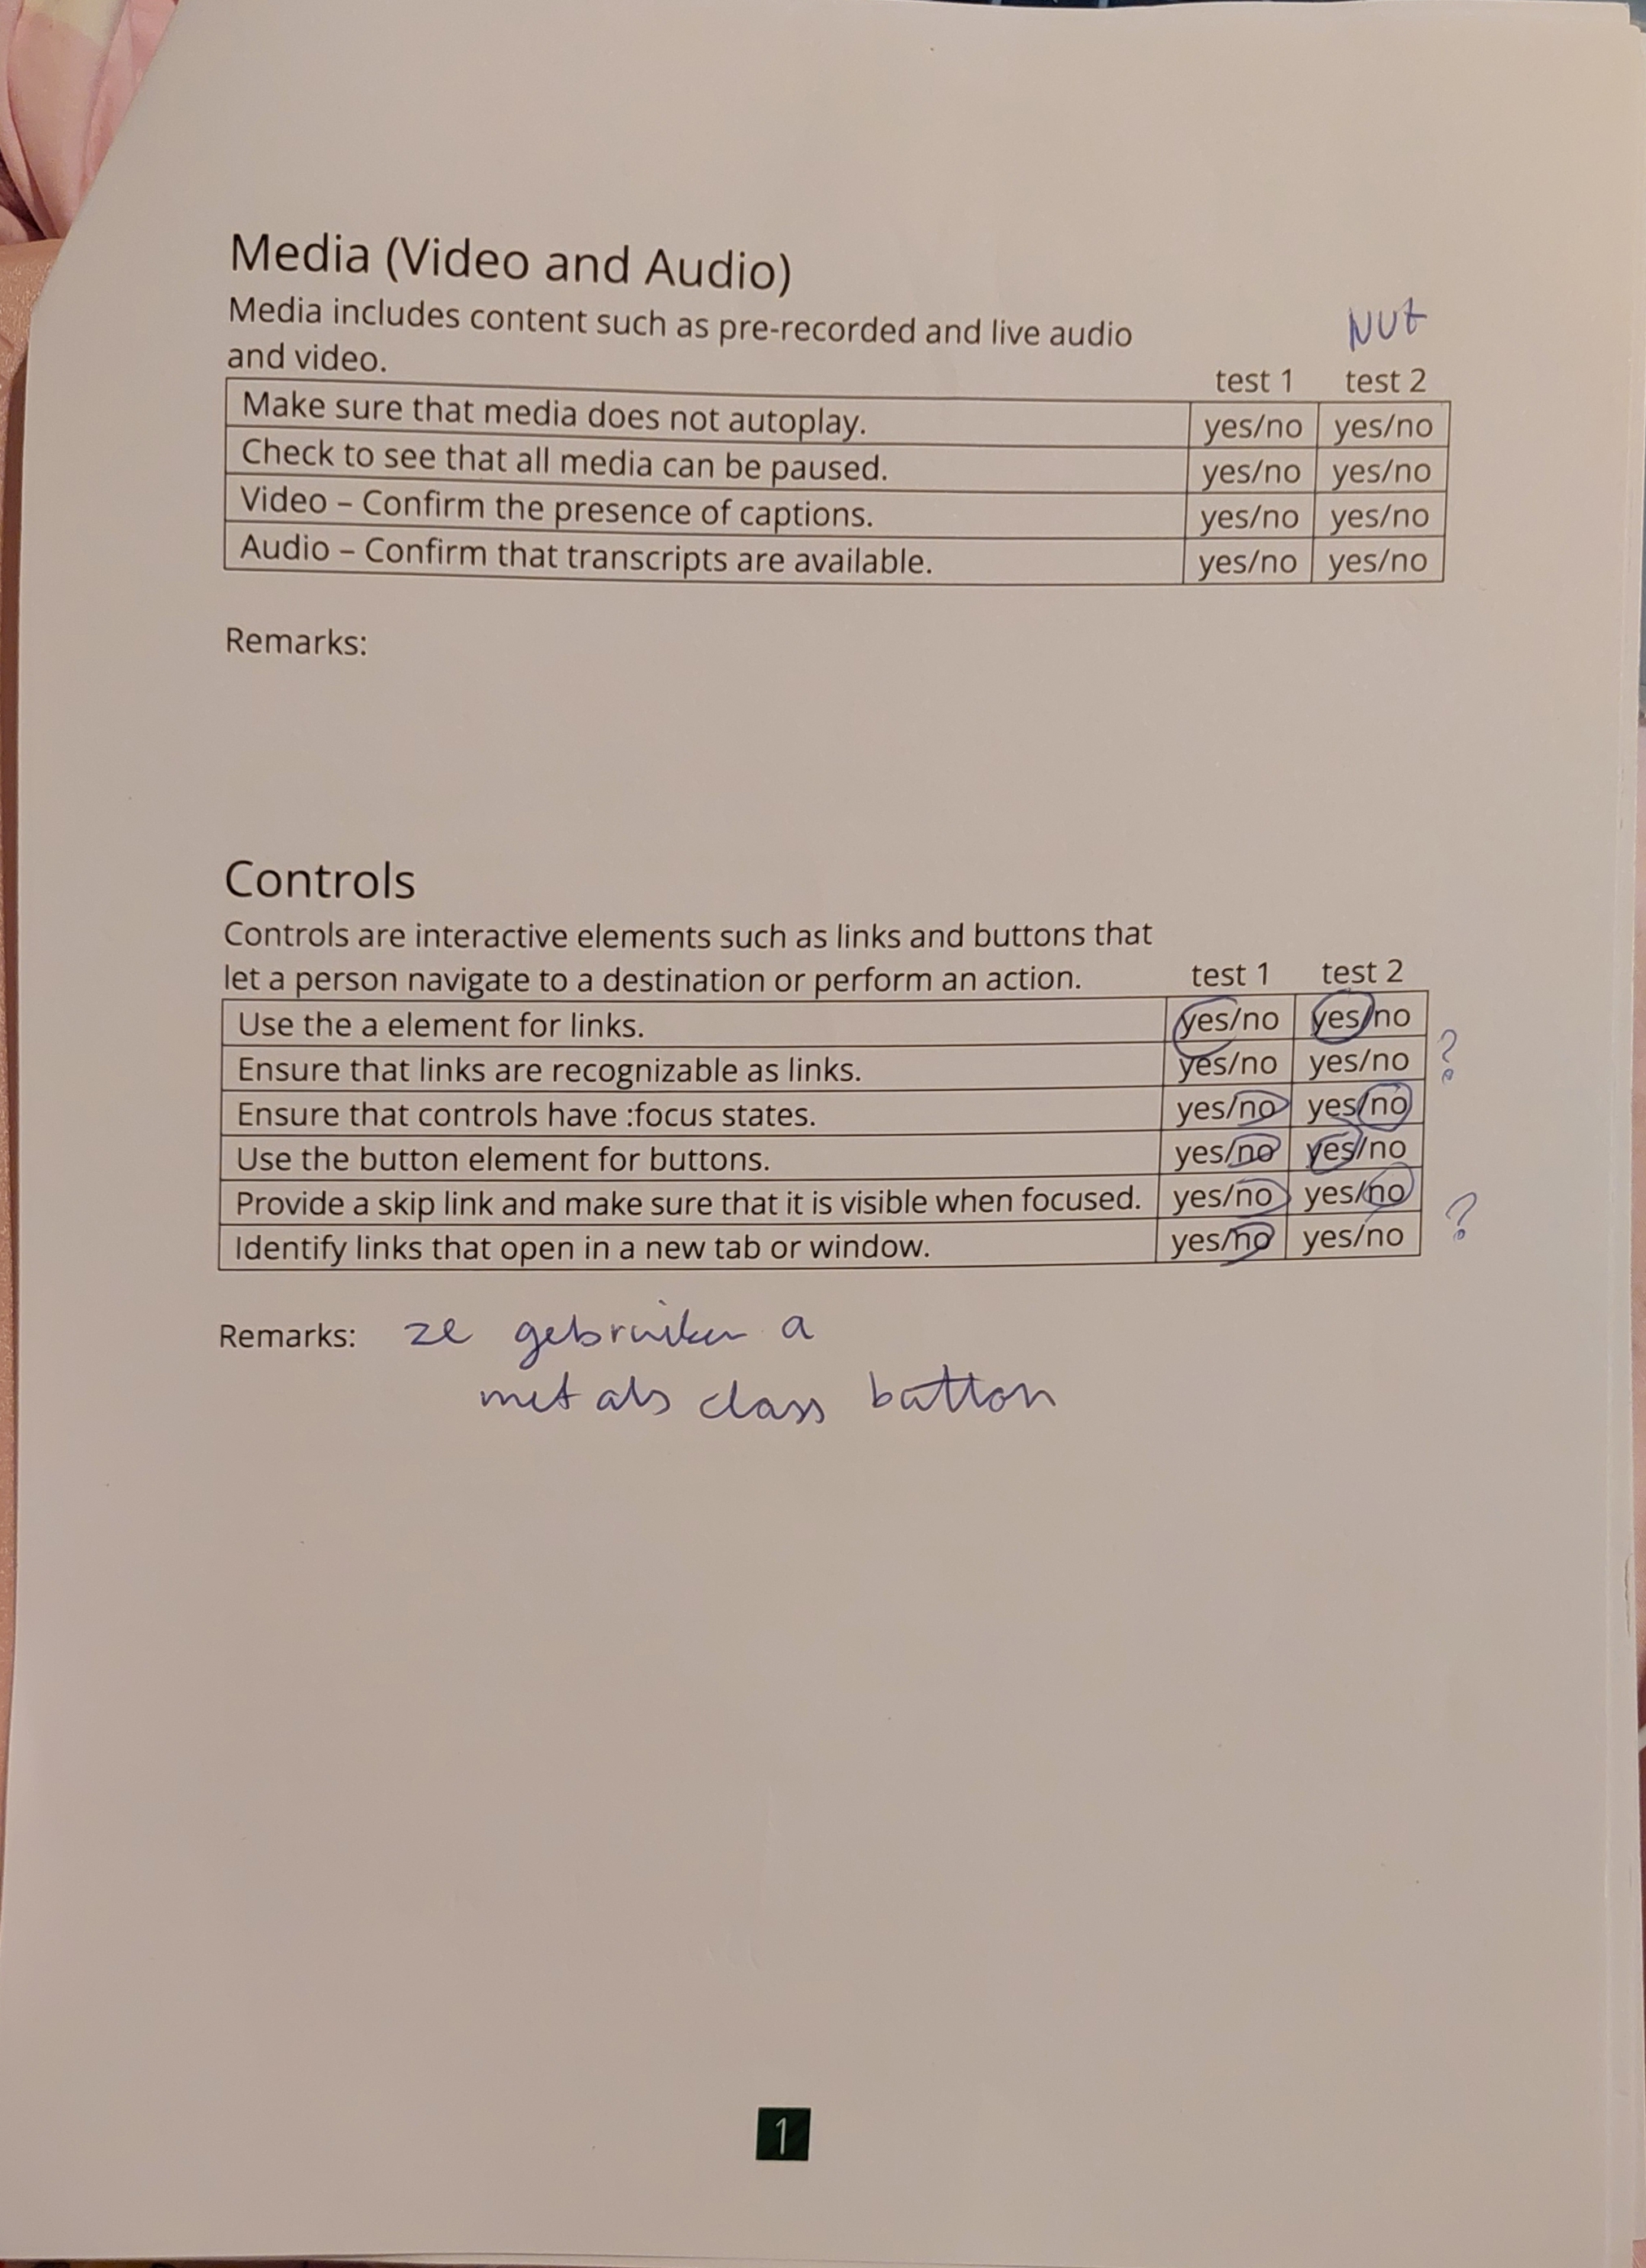 Media (Video and Audio)
Media includes content such as pre-recorded and live audio
and video.
NUt
test 1 test 2
Make sure that media does not autoplay. yes/no yes/no
Check to see that all media can be paused. yes/no yes/no
Video – Confirm the presence of captions. yes/no yes/no
Audio – Confirm that transcripts are available. yes/no yes/no
Remarks:
Controls
Controls are interactive elements such as links and buttons that
let a person navigate to a destination or perform an action. test 1 test 2
Use the a element for links. yes/no yes/no
Ensure that links are recognizable as links. yes/no yes/no ?
Ensure that controls have :focus states. yes/no yes/no
Use the button element for buttons. yes/no yes/no
Provide a skip link and make sure that it is visible when focused. yes/no yes/no
Identify links that open in a new tab or window. yes/no yes/no ?
Remarks: ze gebruiken a
met als class button
1